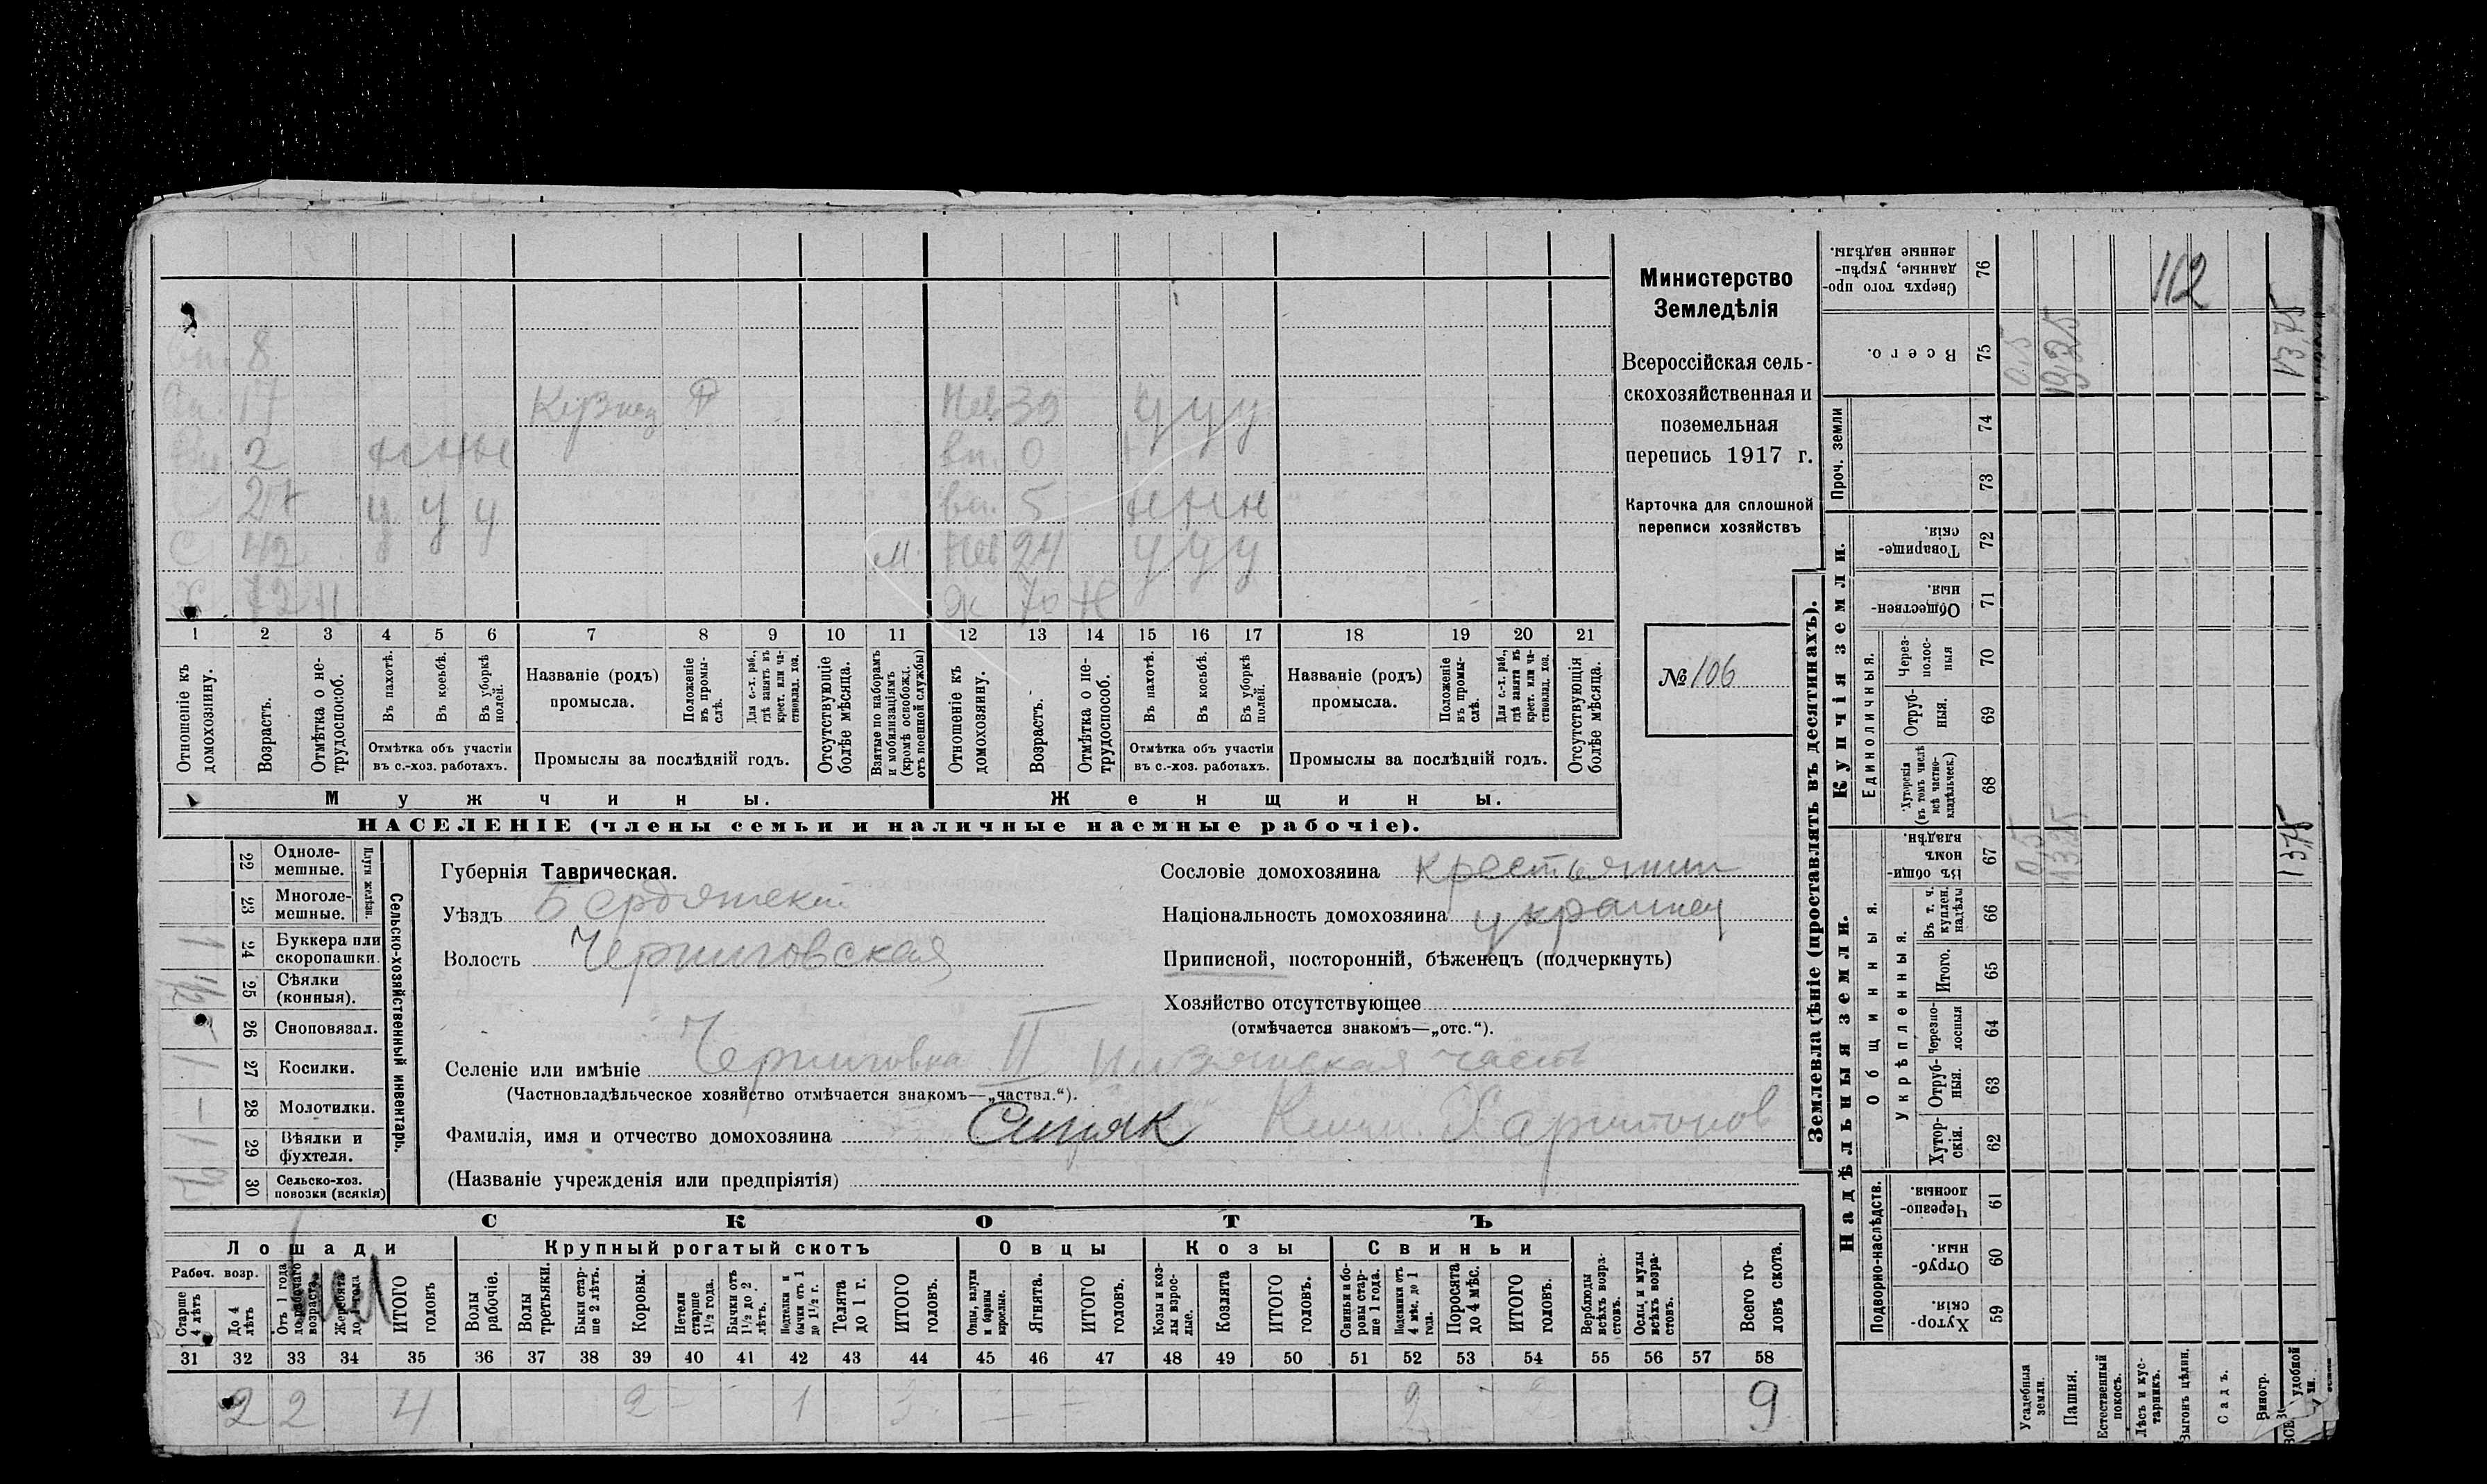 Министерство
Земледѣлія
Всероссійская сель-
скохозяйственная и
поземельная
перепись 1917 г.
Карточка для сплошной
переписи хозяйствъ
№ 106
8
17 Кузнец Нев 39 у у у
2 н н н вп. 0
С 27 у у у вп. 5 н н н
С 42 М. Нев 24 у у у
Х 72 Н Ж 70 Н
1 2 3 4 5 6 7 8 9 10 11 12 13 14 15 16 17 18 19 20 21
Отношеніе къ домохозяину.
Возрастъ.
Отмѣтка о не-трудоспособ.
Въ пахотѣ.
Въ косьбѣ.
Въ уборкѣ полей.
Отмѣтка объ участіи
въ с.-хоз. работахъ.
Названіе (родъ)
промысла.
Положеніе въ промы-слѣ.
Для с.-х. раб., гдѣ занятъ въ крест. или ча-стновлад. хоз.
Промыслы за послѣдній годъ.
Отсутствующіе болѣе мѣсяца.
Взятые по наборамъ и мобилизаціямъ (кромѣ освобожд. отъ военной службы)
Отношеніе къ домохозяину.
Возрастъ.
Отмѣтка о не-трудоспособ.
Въ пахотѣ.
Въ косьбѣ.
Въ уборкѣ полей.
Отмѣтка объ участіи
въ с.-хоз. работахъ.
Названіе (родъ)
промысла.
Положеніе въ промы-слѣ.
Для с.-х. раб., гдѣ занята въ крест. или ча-стновлад. хоз.
Промыслы за послѣдній годъ.
Отсутствующія болѣе мѣсяца.
Мужчины. Женщины.
НАСЕЛЕНІЕ (члены семьи и наличные наемные рабочіе).
Сельско-хозяйственный инвентарь.
Плуги желѣзн.
22 Одноле-мешные.
23 Многоле-мешные.
24 Буккера или скоропашки. 1
25 Сѣялки (конныя). 1/2
26 Сноповязал. -
27 Косилки. 1
28 Молотилки. -
29 Вѣялки и фухтеля. 1
30 Сельско-хоз. повозки (всякія)
Губернія Таврическая.
Уѣздъ Бердянский
Волость Черниговская
Селеніе или имѣніе Черниговка II Низянская часть
(Частновладѣльческое хозяйство отмѣчается знакомъ—„частвл.“).
Фамилія, имя и отчество домохозяина Сиряк Харитонов
(Названіе учрежденія или предпріятія)
Сословіе домохозяина крестьянин
Національность домохозяина украинец
Приписной, посторонній, бѣженецъ (подчеркнуть)
Хозяйство отсутствующее
(отмѣчается знакомъ—„отс.“).
СКОТЪ
Лошади Крупный рогатый скотъ Овцы Козы Свиньи
Рабоч. возр.
Старше 4 лѣтъ
До 4 лѣтъ
Отъ 1 года до рабочаго возраста.
Жеребята до 1 года
ИТОГО головъ
Волы рабочіе.
Волы третьяки.
Быки стар-ше 2 лѣтъ.
Коровы.
Нетели старше 1 1/2 года.
Бычки отъ 1 1/2 до 2 лѣтъ.
Подтелки и бычки отъ 1 до 1 1/2 г.
Телята до 1 г.
ИТОГО головъ.
Овцы, валухи и бараны взрослые.
Ягнята.
ИТОГО головъ.
Козы и коз-лы взрос-лые.
Козлята
ИТОГО головъ.
Свиньи и бо-ровы стар-ше 1 года.
Подсвинки отъ 4 мѣс. до 1 года.
Поросята до 4 мѣс.
ИТОГО головъ.
Верблюды всѣхъ возра-стовъ.
Ослы и мулы всѣхъ возра-стовъ.
Всего го-ловъ скота.
31 32 33 34 35 36 37 38 39 40 41 42 43 44 45 46 47 48 49 50 51 52 53 54 55 56 57 58
2 2 4 2 - 1 3 - - 2 - 2 9
Землевладѣніе (проставлять въ десятинахъ).
Надѣльныя земли.
Подворно-наслѣдств.
59 Хутор-скія.
60 Отруб-ныя.
61 Черезпо-лосныя.
Общинныя.
Укрѣпленныя.
62 Хутор-скія.
63 Отруб-ныя.
64 Черезпо-лосныя
65 Итого.
66 Въ т. ч. куплен. надѣлы
67 Въ общи-номъ владѣн.
Купчія земли.
Единоличныя.
68 Хуторскія (въ томъ числѣ всѣ частно-владѣльческ.)
69 Отруб-ныя.
70 Через-полос-ныя
71 Обществен-ныя.
72 Товарище-скія.
Проч. земли
73
74
75 Всего.
76 Сверхъ того про-данные, укрѣп-ленные надѣлы.
Усадебныя земли. 0,5 0,5
Пашня. 13,25 13,25
Естественный покосъ.
Лѣсъ и кус-тарникъ.
Выгонъ цѣлин.
Садъ.
Виногр.
удобной 13,75 13,75
112